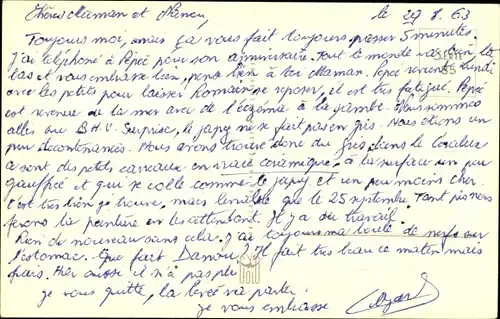 Chères Maman et Manou, le 29. 8. 63
Toujours moi, mais ça vous fait toujours passer 5 minutes.
J'ai téléphoné à Pépée pour son anniversaire. Tout le monde va bien là
bas et vous embrasse bien, pense bien à toi Maman. Pépée revient lundi
avec les petits pour laisser Romain se reposer, il est très fatigué. Pépée
est revenue de la mer avec de l'eczéma à la jambe. Nous sommes
allés au B.H.V. Surprise, le japy ne se fait pas en gris. Nous étions un
peu décontenancés. Nous avons trouvé donc du gris dans le
ce sont des petits carreaux en vraie céramique, à la surface un peu
gauffrée et qui se colle comme le japy et un peu moins cher.
C'est très bien je trouve, mais le que le 25 septembre. Tant pis nous
ferons la peinture en les attendant. Il y a du travail.
Rien de nouveau sans cela. J'ai toujours ma boule de nerfs sur
l'estomac. Que fait Danou? Il fait très beau ce matin mais
frais. Hier aussi il n'a pas plu
je vous quitte, la levée va partir.
je vous embrasse